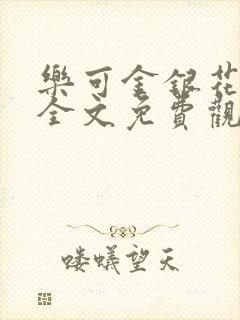 樂可金銀花
全文免費觀
喽蟻望天